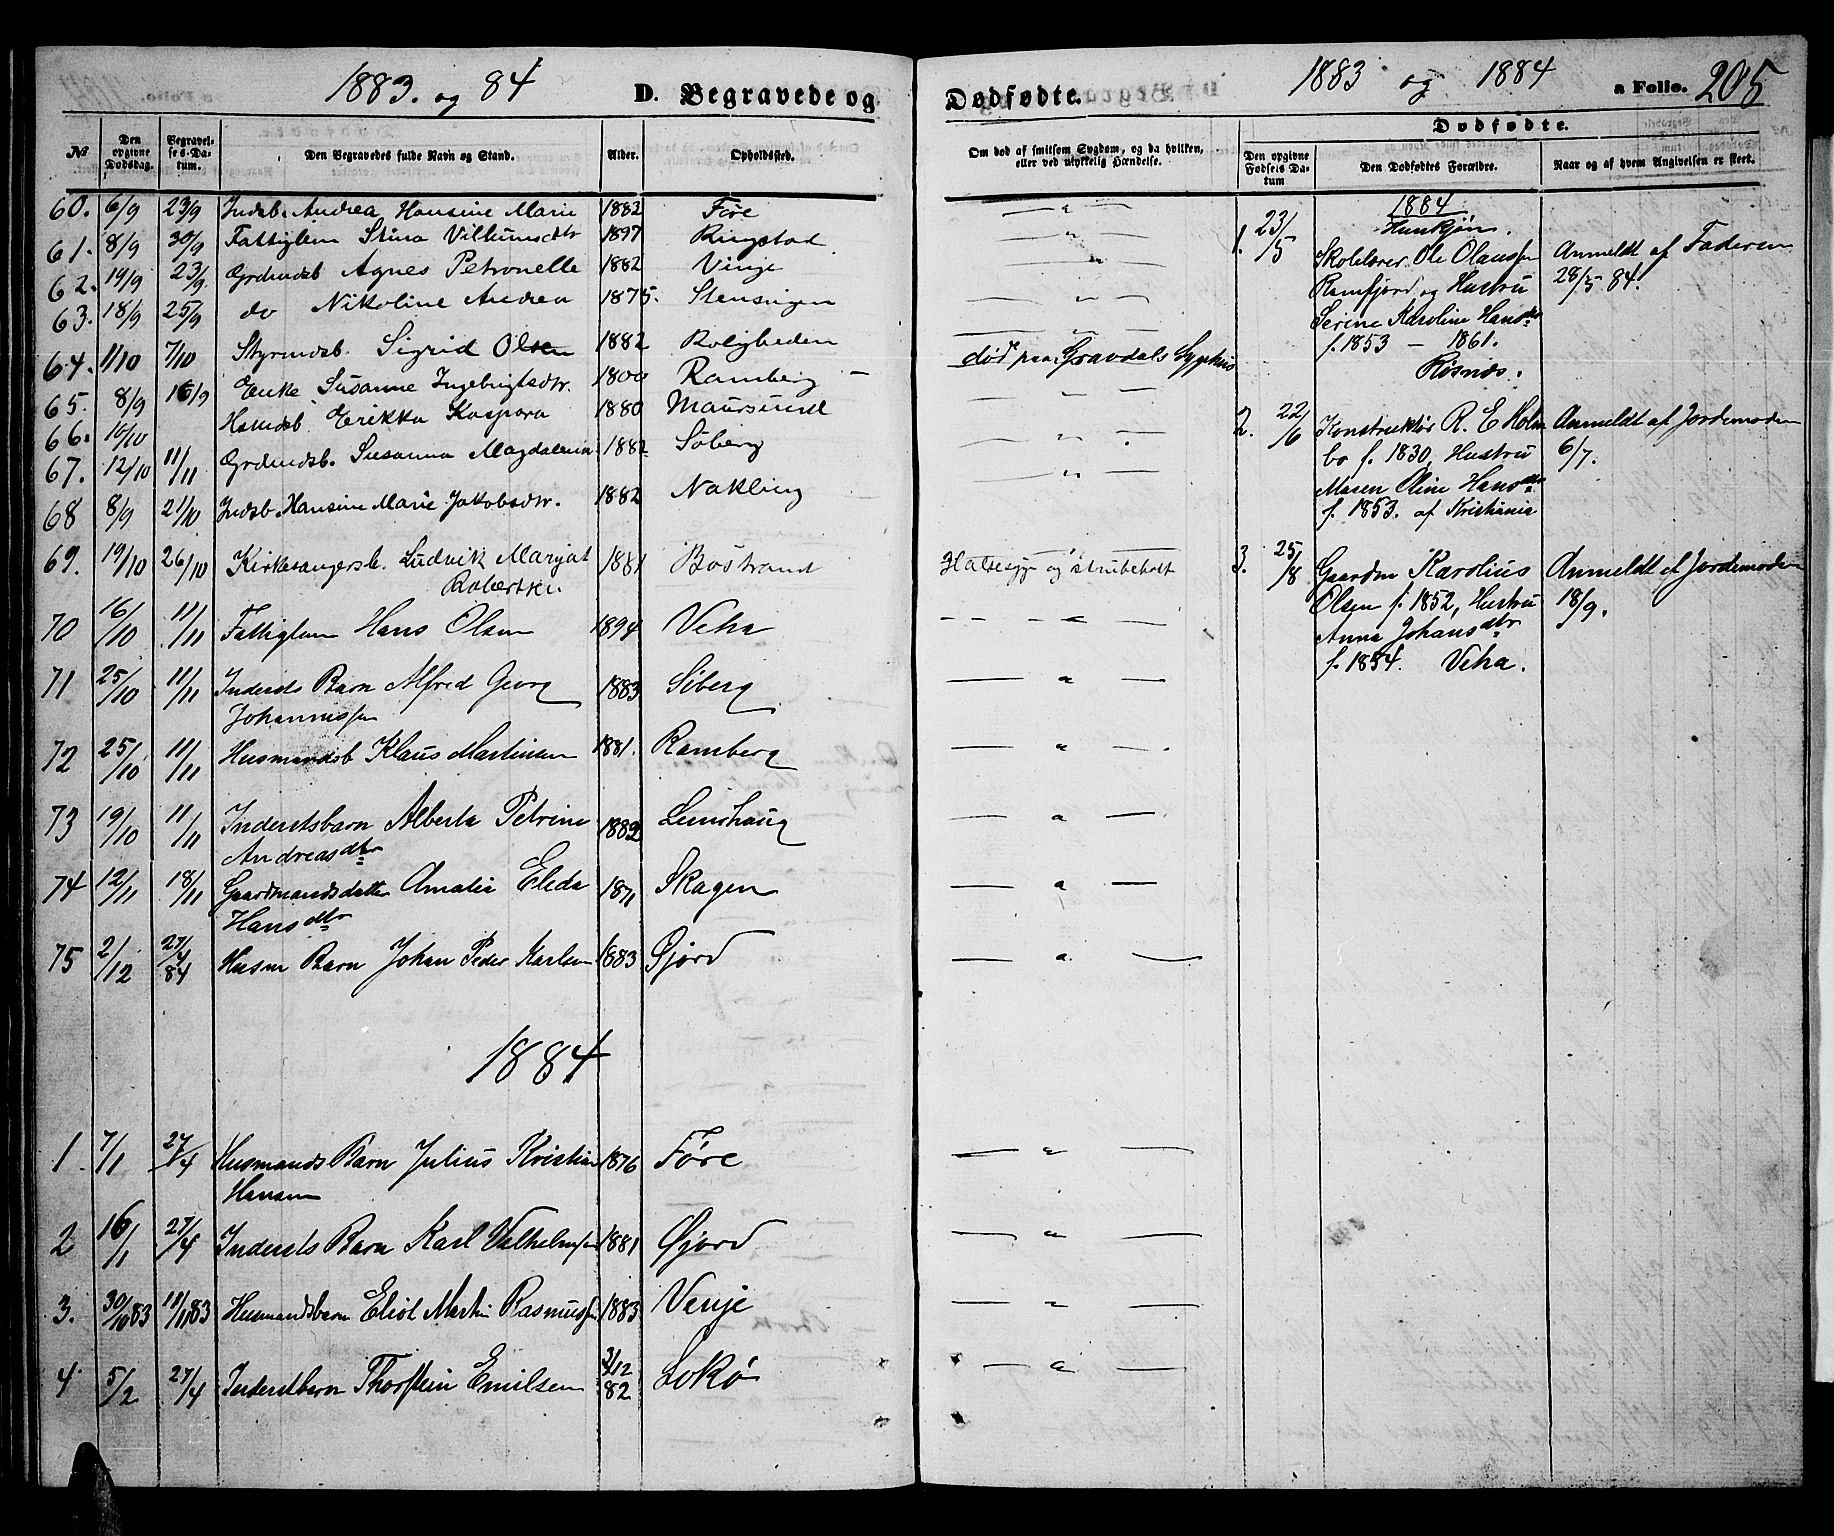 1883. og 84 D. Begravede og
№ Den opgivne Dødsdag. Begravelses-Datum. Den Begravedes fulde Navn og Stand. Alder. Opholdssted.
60. 6/9 23/9 Indsb. Andrea Hansine Marie 1882 Føre
61. 8/9 30/9 Fattiglem Stina Vilhumsdtr 1897 Ringstad
62. 19/9 23/9 Grdmdsb Agnes Petronelle 1882 Vinje
63. 18/9 25/9 do Nikoline Andrea 1875. Stensingen
64. 1/10 7/10 Styrmdsb. Sigrid Olsen 1882 Roligheden
65. 8/9 16/9 Enke Susanne Ingebrigtsdtr. 1800 Ramberg
66. 10/10 Hsmdsb Erikka Kaspara 1880 Maursund
67. 12/10 11/11 Grdmdsb. Susanna Magdalena 1882 Søberg
68 8/9 21/10 Indsb. Hansine Marie Jakobsdtr. 1882 Nakling
69. 19/10 26/10 Kirkesangersb. Ludvik Maryat 1881 Bøstrand
Robertsen.
70 16/10 11/11 Fattiglem Hans Olsen 1894 Veha
71 25/10 11/11 Indersts Barn Alfred Georg 1883 Siberg
Johannessen
72 25/10 11/11 Husmandsb Klaus Martinsen 1881. Ramberg
73 19/10 11/11 Inderstsbarn Alberta Petrine 1882 Limshaug
Andreasdtr
74 12/11 18/11 Gaardmandsdatter Amalia Elida 1871 Skagen
Hansdtr
75 2/12 27/4 84 Husm Barn Johan Peder Karlsen 1883 Øjord
1884
1. 7/1 27/4 Husmands Barn Julius Kristian 1876 Føre
Hansen
2 16/1 27/4 Indersts Barn Karl Valhelmsen 1881 Øjord
3. 30/10 83 18/11 83 Husmandsbarn Eliot Martin Rasmussen 1883 Venje
4 5/2 27/4 Inderstbarn Thorstein Emilsen 2/12 82 Sokø
Dødfødte. 1883 og 1884 a Folio. 205
Dødfødte.
Om død af smitsom Sygdom, og da hvilken, eller ved ulykkelig Hændelse. Den opgivne Fødsels Datum Den Dødfødtes Forældre. Naar og af hvem Angivelsen er skeet.
død paa Gravdals Sygehus
Halsesyge og strubehost
1884
Hunkjøn.
1. 23/5 Skolelærer Ole Olaussen Anmeldt af Faderen
Ramfjord og Hustru 28/5 84.
Serine Karoline Hansdtr
f. 1853 — 1861.
Røsnes.
2. 22/6 Konstruktør R. E Holm Anmeldt af Jordemoderen
bo f. 1830, Hustru 6/7.
Maren Oline Hansdtr
f. 1853. af Kristiania
3. 25/8 Gaardm Karolius Anmeldt af Jordemoderen
Olsen f. 1852, Hustru 18/9.
Anna Johansdtr
f. 1854. Veha.